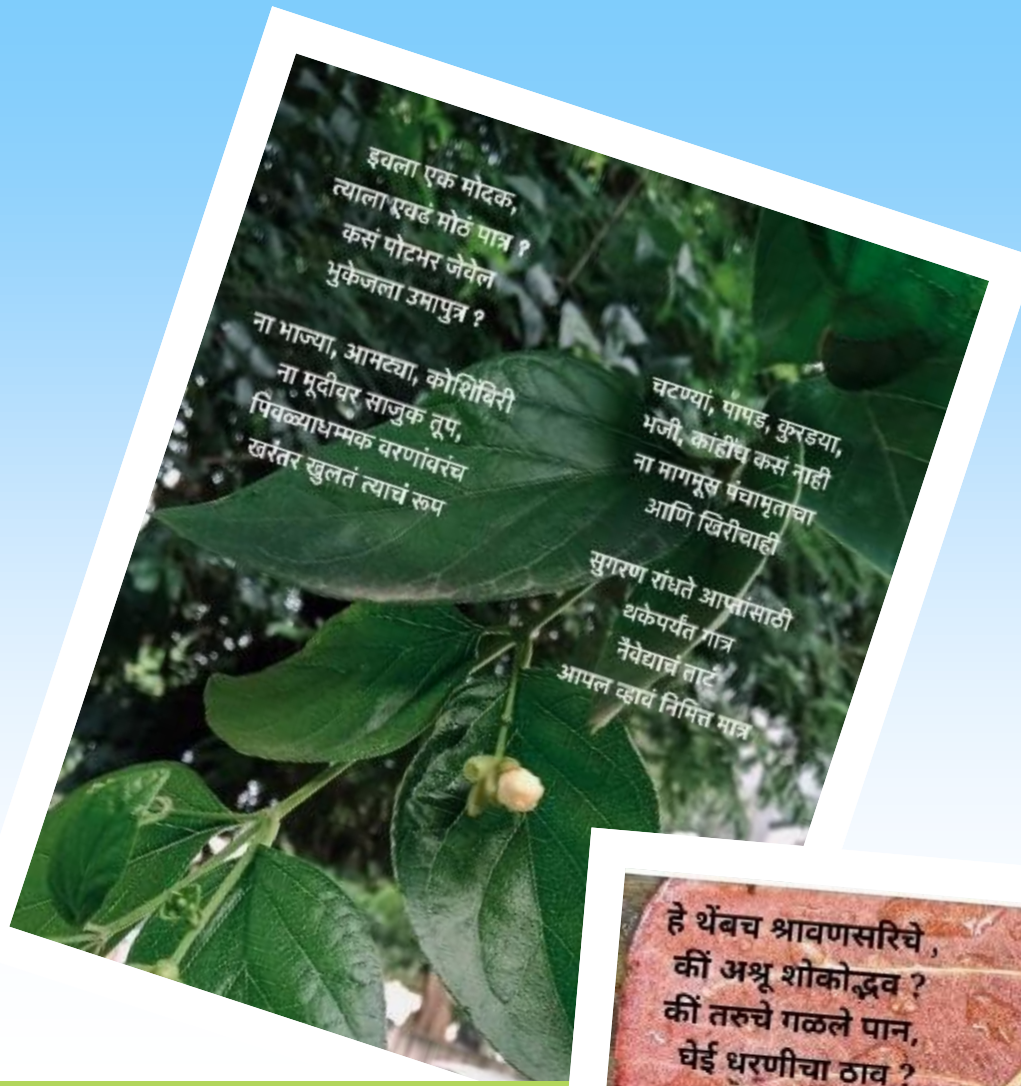 इवला एक मोदक,
त्याला एवढं मोठं पात्र ?
कसं पोटभर जेवेल
भुकेजला उमापुत्र ?
ना भाज्या, आमट्या, कोशिंबिरी
ना मूदीवर साजुक तूप,
पिवळ्याधम्मक वरणांवरंच
खरंतर खुलतं त्याचं रूप
चटण्यां, पापड, कुरडया,
भजी, कांहींच कसं नाही
ना मागमूस पंचामृताचा
आणि खिरीचाही
सुगरण रांधते आप्तांसाठी
थकेपर्यंत गात्र
नैवेद्याचं ताटं
आपल व्हावं निमित्त मात्र
हे थेंबच श्रावणसरिचे ,
कीं अश्रू शोकोद्भव ?
कीं तरुचे गळले पान,
घेई धरणीचा ठाव ?